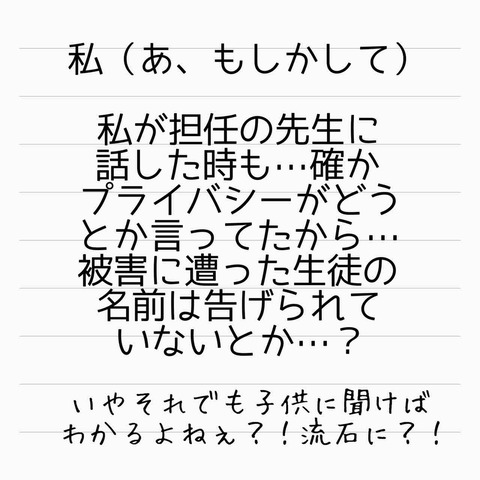 私（あ、もしかして）
私が担任の先生に
話した時も…確か
プライバシーがどう
とか言ってたから…
被害に遭った生徒の
名前は告げられて
いないとか…？
いやそれでも子供に聞けば
わかるよねぇ？！流石に？！